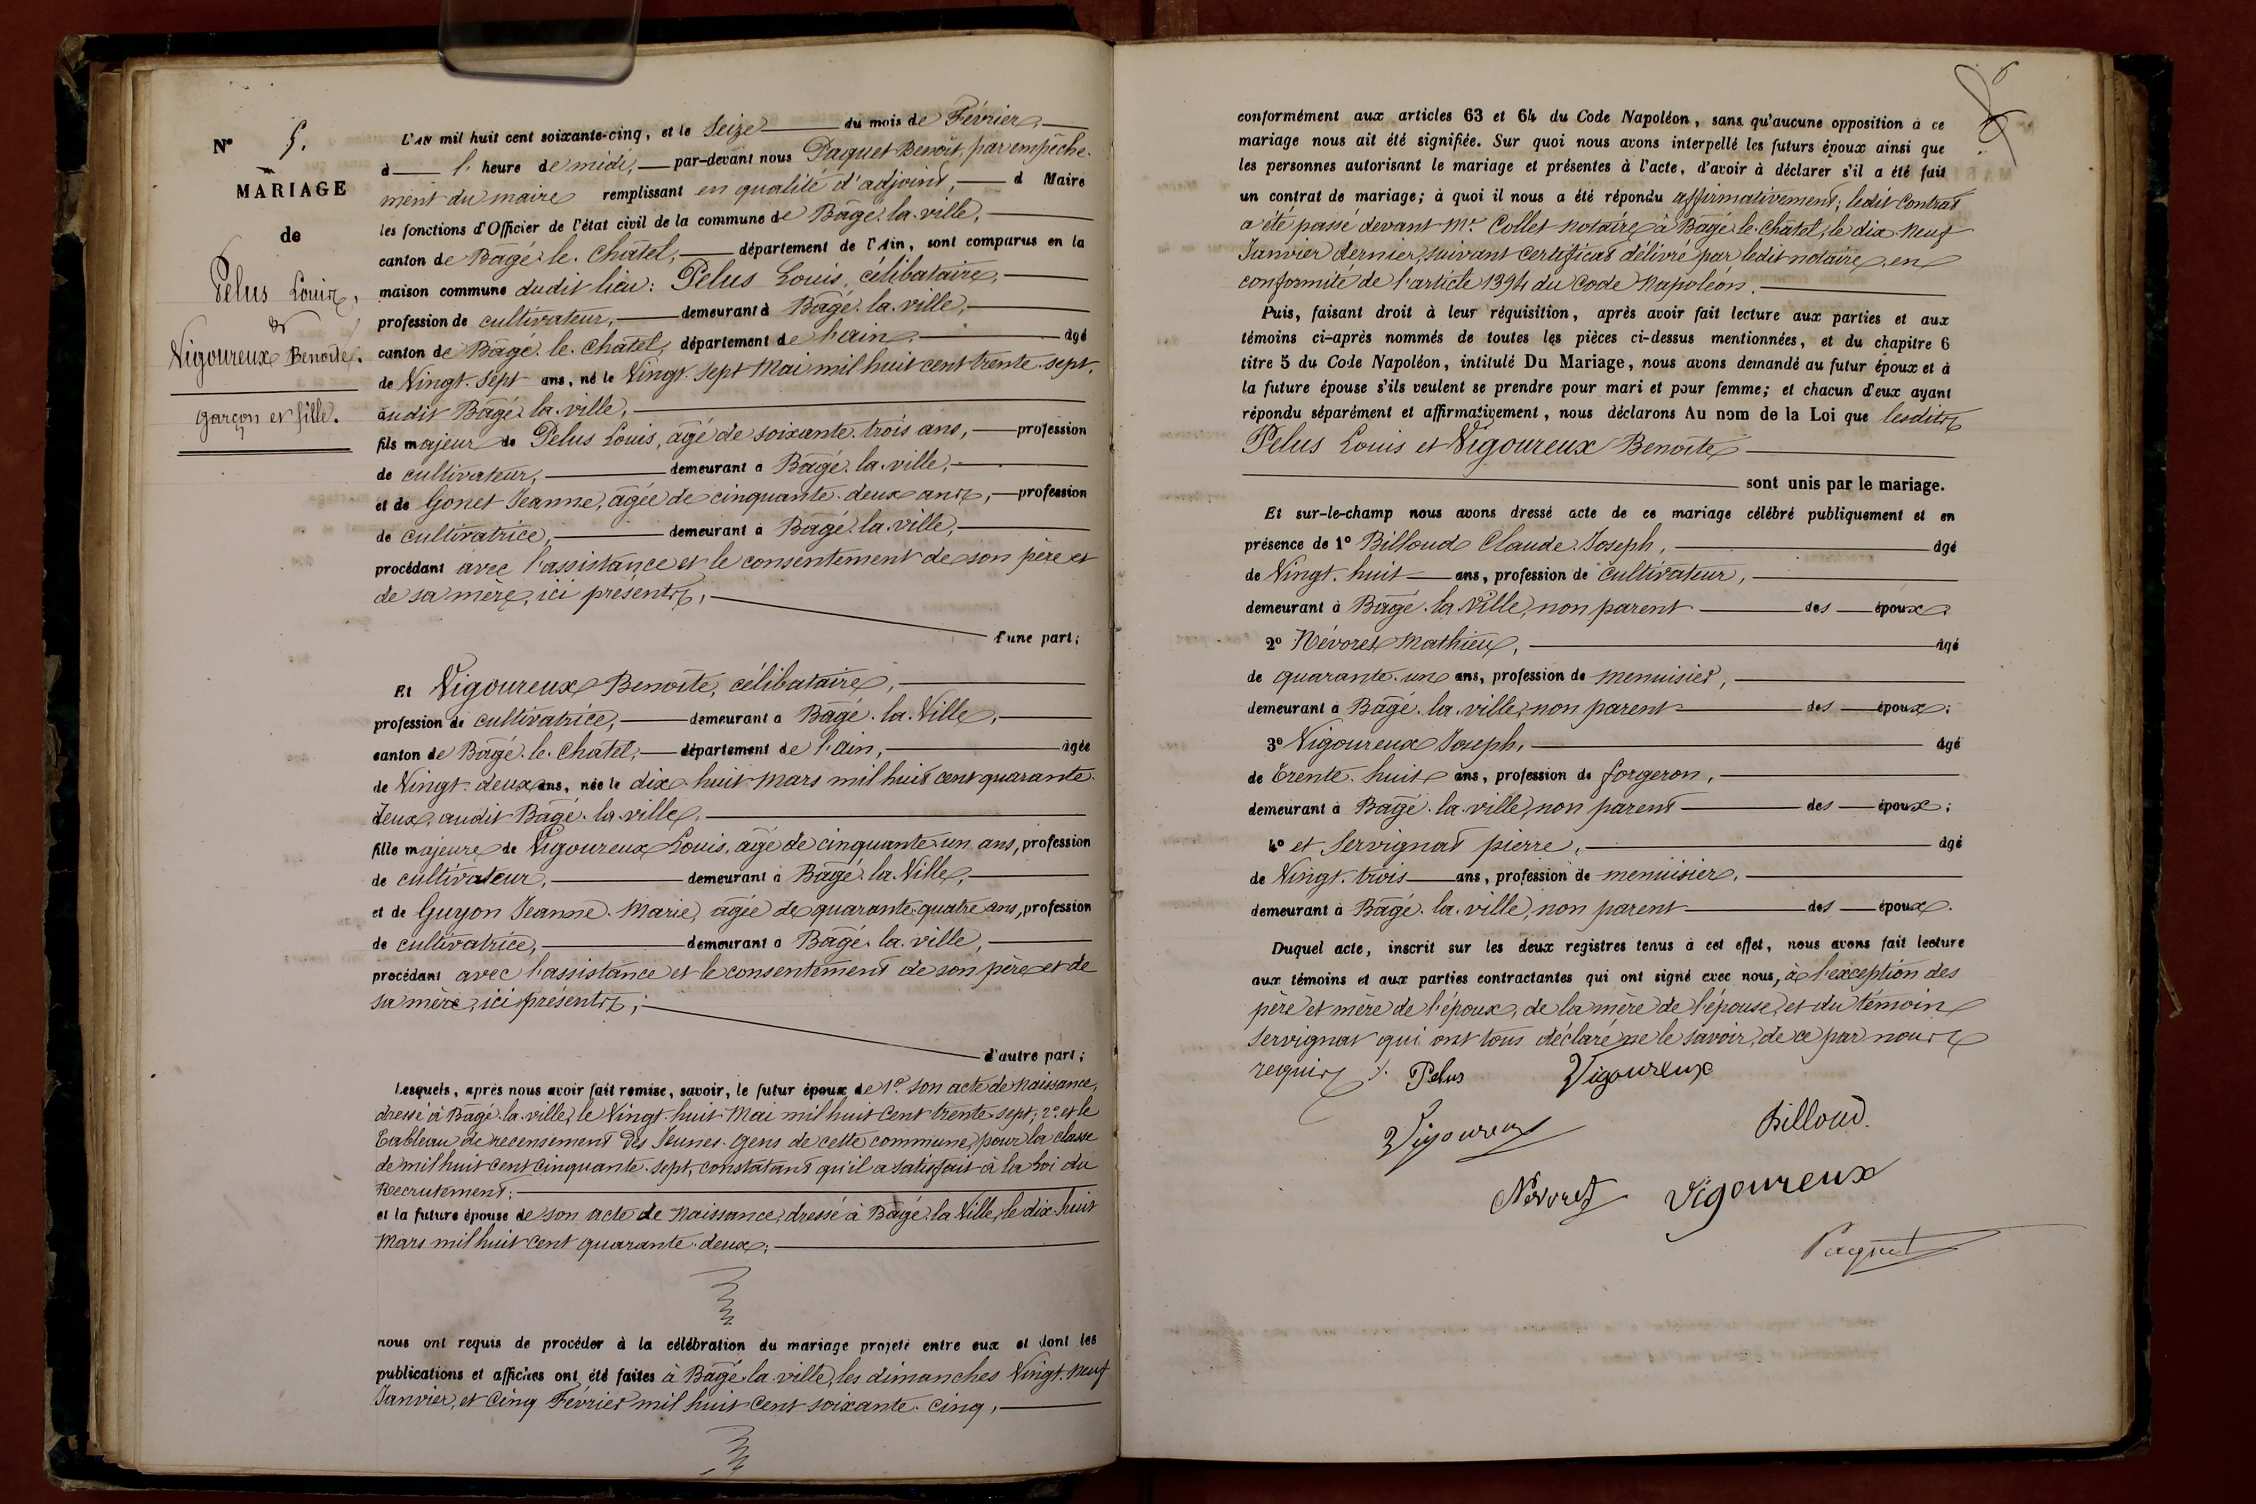 N° 5.
MARIAGE
de
Pelus Louis,
et
Vigoureux Benoite.
garçon et fille.
L'AN mil huit cent soixante-cinq, et le Seize du mois de Février,
à l'heure de midi, par-devant nous Paquet Benoit, par empêche-
ment du maire remplissant en qualité d'adjoint, d Maire
les fonctions d'Officier de l'état civil de la commune de Bâgé-la-ville,
canton de Bâgé-le-Châtel, département de l'Ain, sont comparus en la
maison commune dudit lieu: Pelus Louis, célibataire,
profession de cultivateur, demeurant à Bâgé-la-ville,
canton de Bâgé-le-Châtel, département de l'ain, âgé
de Vingt-sept ans, né le Vingt-sept Mai mil huit cent trente-sept,
audit Bâgé-la-ville,
fils majeur de Pelus Louis, âgé de soixante-trois ans, profession
de cultivateur, demeurant à Bâgé-la-ville,
et de Gonet Jeanne, âgée de cinquante-deux ans, profession
de cultivatrice, demeurant à Bâgé-la-ville,
procédant avec l'assistance et le consentement de son père et
de sa mère, ici présents,
d'une part;
Et Vigoureux Benoite, célibataire,
profession de cultivatrice, demeurant à Bâgé-la-Ville,
canton de Bâgé-le-Châtel, département de l'ain, âgée
de Vingt-deux ans, née le dix-huit Mars mil huit cent quarante-
deux, audit Bâgé-la-ville,
fille majeure de Vigoureux Louis, âgé de cinquante-un ans, profession
de cultivateur, demeurant à Bâgé-la-Ville,
et de Guyon Jeanne-Marie, âgée de quarante-quatre ans, profession
de cultivatrice, demeurant à Bâgé-la-ville,
procédant avec l'assistance et le consentement de son père et de
sa mère, ici présents;
d'autre part;
Lesquels, après nous avoir fait remise, savoir, le futur époux de 1° son acte de naissance,
dressé à Bâgé-la-ville, le Vingt-huit Mai mil huit cent trente-sept; 2° et le
Tableau de recensement des Jeunes-Gens de cette commune, pour la classe
de mil huit cent cinquante-sept, constatant qu'il a satisfait à la loi du
Recrutement:
et la future épouse de son acte de Naissance, dressé à Bâgé-la-Ville, le dix-huit
Mars mil huit cent quarante-deux;
nous ont requis de procéder à la célébration du mariage projeté entre eux et dont les
publications et affiches ont été faites à Bâgé-la-ville, les dimanches Vingt-neuf
Janvier, et Cinq Février mil huit cent soixante-cinq,
6
conformément aux articles 63 et 64 du Code Napoléon, sans qu'aucune opposition à ce
mariage nous ait été signifiée. Sur quoi nous avons interpellé les futurs époux ainsi que
les personnes autorisant le mariage et présentes à l'acte, d'avoir à déclarer s'il a été fait
un contrat de mariage; à quoi il nous a été répondu affirmativement; ledit contrat
a été passé devant Me Collet notaire à Bâgé-le-Châtel, le dix-neuf
Janvier dernier, suivant certificat délivré par ledit notaire, en
conformité de l'article 1394 du Code Napoléon.
Puis, faisant droit à leur réquisition, après avoir fait lecture aux parties et aux
témoins ci-après nommés de toutes les pièces ci-dessus mentionnées, et du chapitre 6
titre 5 du Code Napoléon, intitulé Du Mariage, nous avons demandé au futur époux et à
la future épouse s'ils veulent se prendre pour mari et pour femme; et chacun d'eux ayant
répondu séparément et affirmativement, nous déclarons Au nom de la Loi que lesdits
Pelus Louis et Vigoureux Benoite
sont unis par le mariage.
Et sur-le-champ nous avons dressé acte de ce mariage célébré publiquement et en
présence de 1° Billoud Claude-Joseph, âgé
de Vingt-huit ans, profession de cultivateur,
demeurant à Bâgé-la-Ville, non parent des époux.
2° Névoret Mathieu, âgé
de quarante-un ans, profession de menuisier,
demeurant à Bâgé-la-ville, non parent des époux;
3° Vigoureux Joseph, âgé
de Trente-huit ans, profession de forgeron,
demeurant à Bâgé-la-ville, non parent des époux;
4° et Servignat pierre, âgé
de Vingt-trois ans, profession de menuisier,
demeurant à Bâgé-la-ville, non parent des époux.
Duquel acte, inscrit sur les deux registres tenus à cet effet, nous avons fait lecture
aux témoins et aux parties contractantes qui ont signé avec nous, à l'exception des
père et mère de l'époux, de la mère de l'épouse, et du témoin
Servignat qui ont tous déclaré ne le savoir, de ce par nous
requis. Pelus Vigoureux
Vigoureux Billoud.
Névoret Vigoureux
Paquet